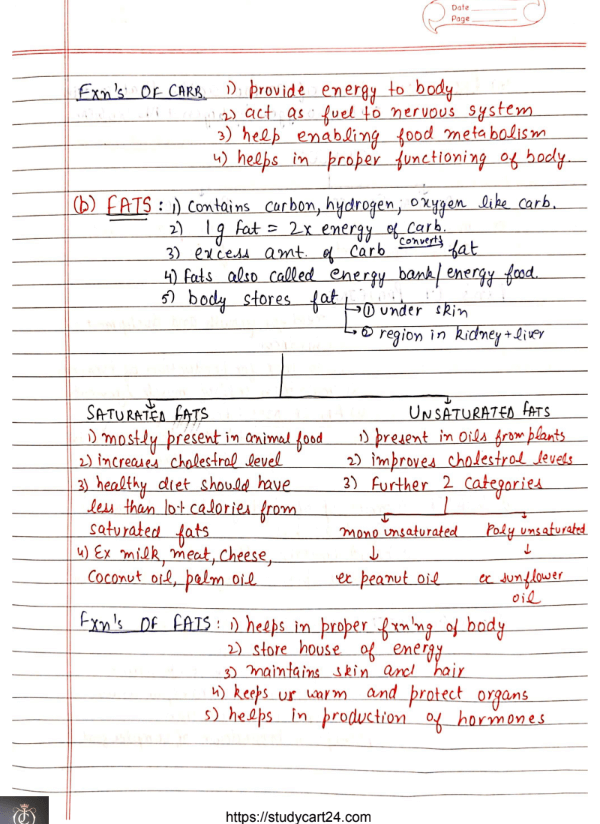 Date
Page
Fxn's OF CARB 1) provide energy to body
2) act as fuel to nervous system
3) help enabling food metabolism
4) helps in proper functioning of body.
(b) FATS : 1) contains carbon, hydrogen, oxygen like carb.
2) 1g fat = 2x energy of carb.
3) excess amt. of carb converts fat
4) fats also called energy bank/energy food.
5) body stores fat
① under skin
② region in kidney + liver
SATURATED FATS UNSATURATED FATS
1) mostly present in animal food 1) present in oils from plants
2) increases cholestral level 2) improves cholestrol levels
3) healthy diet should have 3) Further 2 categories
less than 10% calories from
saturated fats mono unsaturated Poly unsaturated
4) Ex milk, meat, cheese,
coconut oil, palm oil ex peanut oil ex sunflower
oil
Fxn's OF FATS : 1) helps in proper fxn'ng of body
2) store house of energy
3) maintains skin and hair
4) keeps us warm and protect organs
5) helps in production of hormones
https://studycart24.com